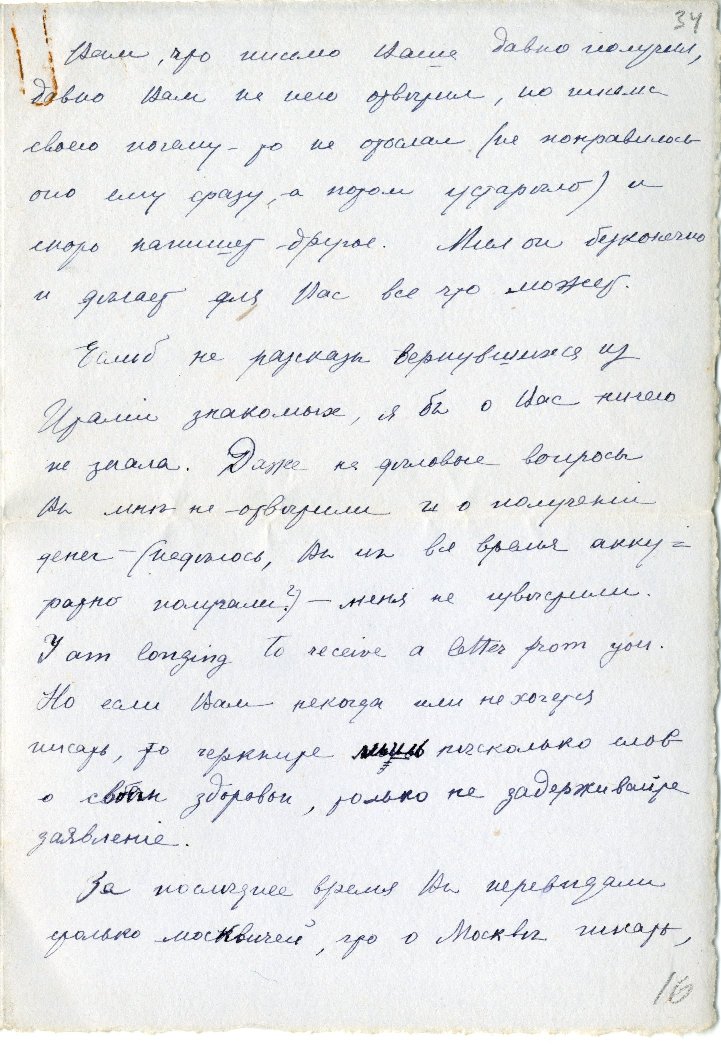 34
Вам, что письмо Ваше давно получил,
давно Вам на него отвѣтил, но письма
своего почему-то не отослал (не понравилось
оно ему сразу, а потом устарѣло) и
скоро напишет другое. Мил он безконечно
и дѣлает для Вас все что может.
Еслиб не разсказы вернувшихся из
Италiи знакомых, я бы о Вас ничего
не знала. Даже на дѣловые вопросы
Вы мнѣ не отвѣтили и о полученiи
денег — (надѣюсь, Вы их все время акку=
ратно получали?) — меня не извѣстили.
I am longing to receive a letter from you.
Но если Вам некогда или не хочется
писать, то черкните нѣсколько слов
о своем здоровьи, только не задерживайте
заявленiе.
За послѣднее время Вы перевидали
столько москвичей, что о Москвѣ писать,
16